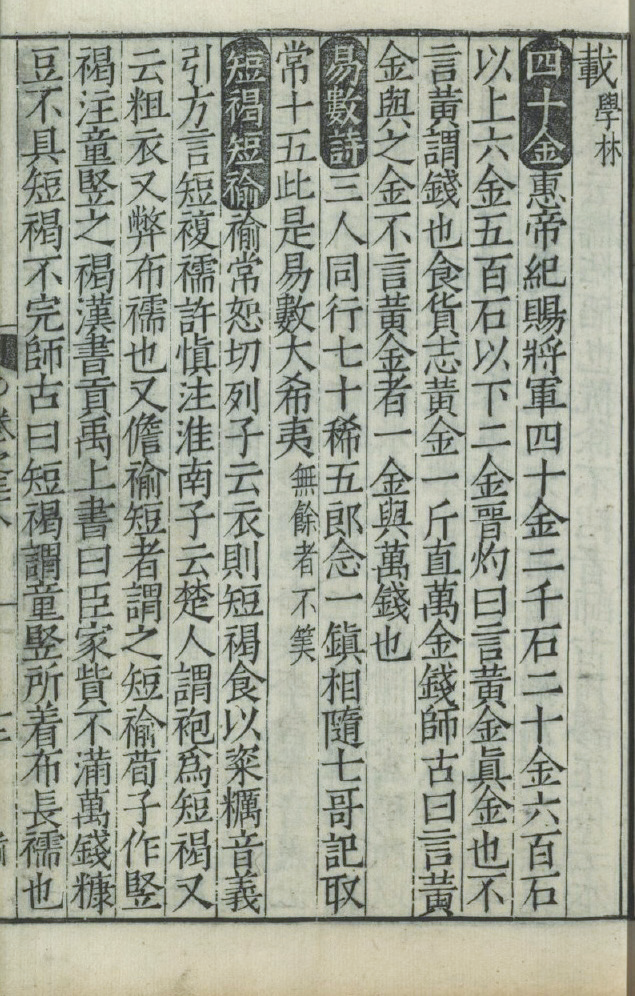 載學林
四十金惠帝紀賜將軍四十金二千石二十金六百石
以上六金五百石以下二金晉灼曰言黃金眞金也不
言黃謂錢也食貨志黃金一斤直萬金錢師古曰言黃
金與之金不言黃金者一金與萬錢也
易數詩三人同行七十稀五郎念一鎮相隨七哥記取
常十五此是易數大希夷無餘者不筭
短褐短褕褕常恕切列子云衣則短褐食以粢糲音義
引方言短複襦許慎注淮南子云楚人謂袍爲短褐又
云粗衣又弊布襦也又儋褕短者謂之短褕荀子作竪
褐注童竪之褐漢書貢禹上書曰臣家貲不滿萬錢糠
豆不具短褐不完師古曰短褐謂童竪所着布長襦也